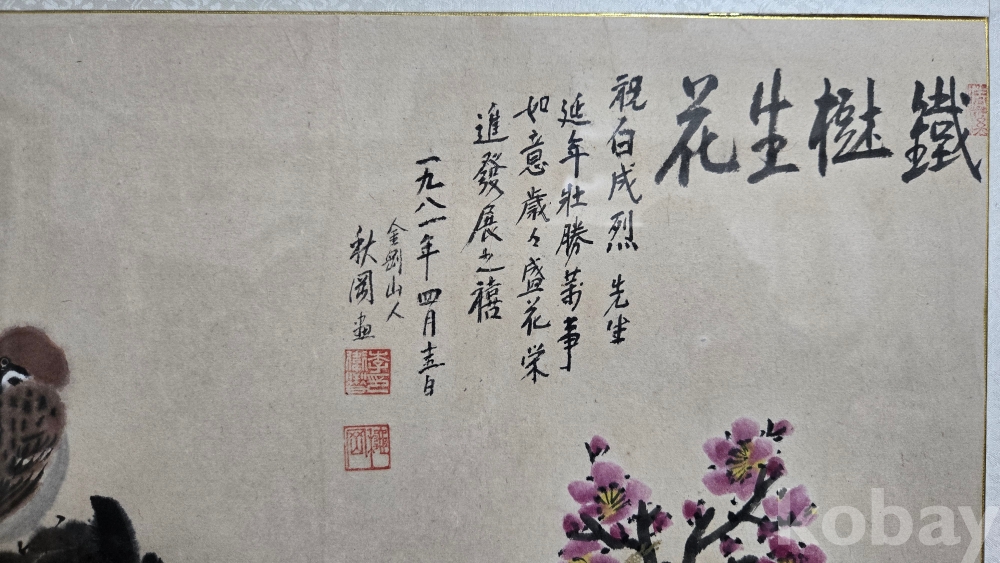 鐵樾生花
祝白成烈 先生
延年壯勝萬事
如意歲々盛花榮
進發展之禧
一九八一年四月十五日
金剛山人
秋岡画
kobay